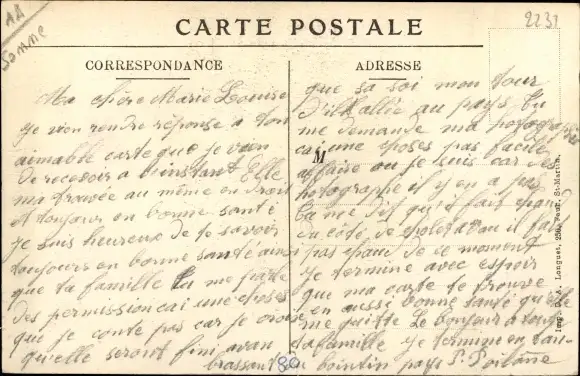 CARTE POSTALE
CORRESPONDANCE
ADRESSE
2231
Somme
Ma chère Marie Louise
je vien rendre réponse a ton
aimable carte que je vien
de recevoir a l'instant Elle
ma trouvée au même endroit
et toujours en bonne santé
je suis heureux de te savoir
toujours en bonne santé ainsi
que ta famille tu me parle
des permission cai une choses
que je conte pas car je crois
qu'elle seront fini avan
que sa soi mon tour
d'it allée au pays tu
me demande ma potographie
ces une choses pas facile
affaire ou je suis car des
potographe il y en a pas
tu me dis qu'il fait chaud
du côté de il fait
pas chaud de ce moment
je termine avec espoir
que ma carte te trouve
en aussi bonne santé qu'elle
me quitte Le bonjour a toute
ta famille je termine en t'an-
brassant bointin pays P.
M
80
Imp. A. Longuet, 250, Faub. St-Martin.